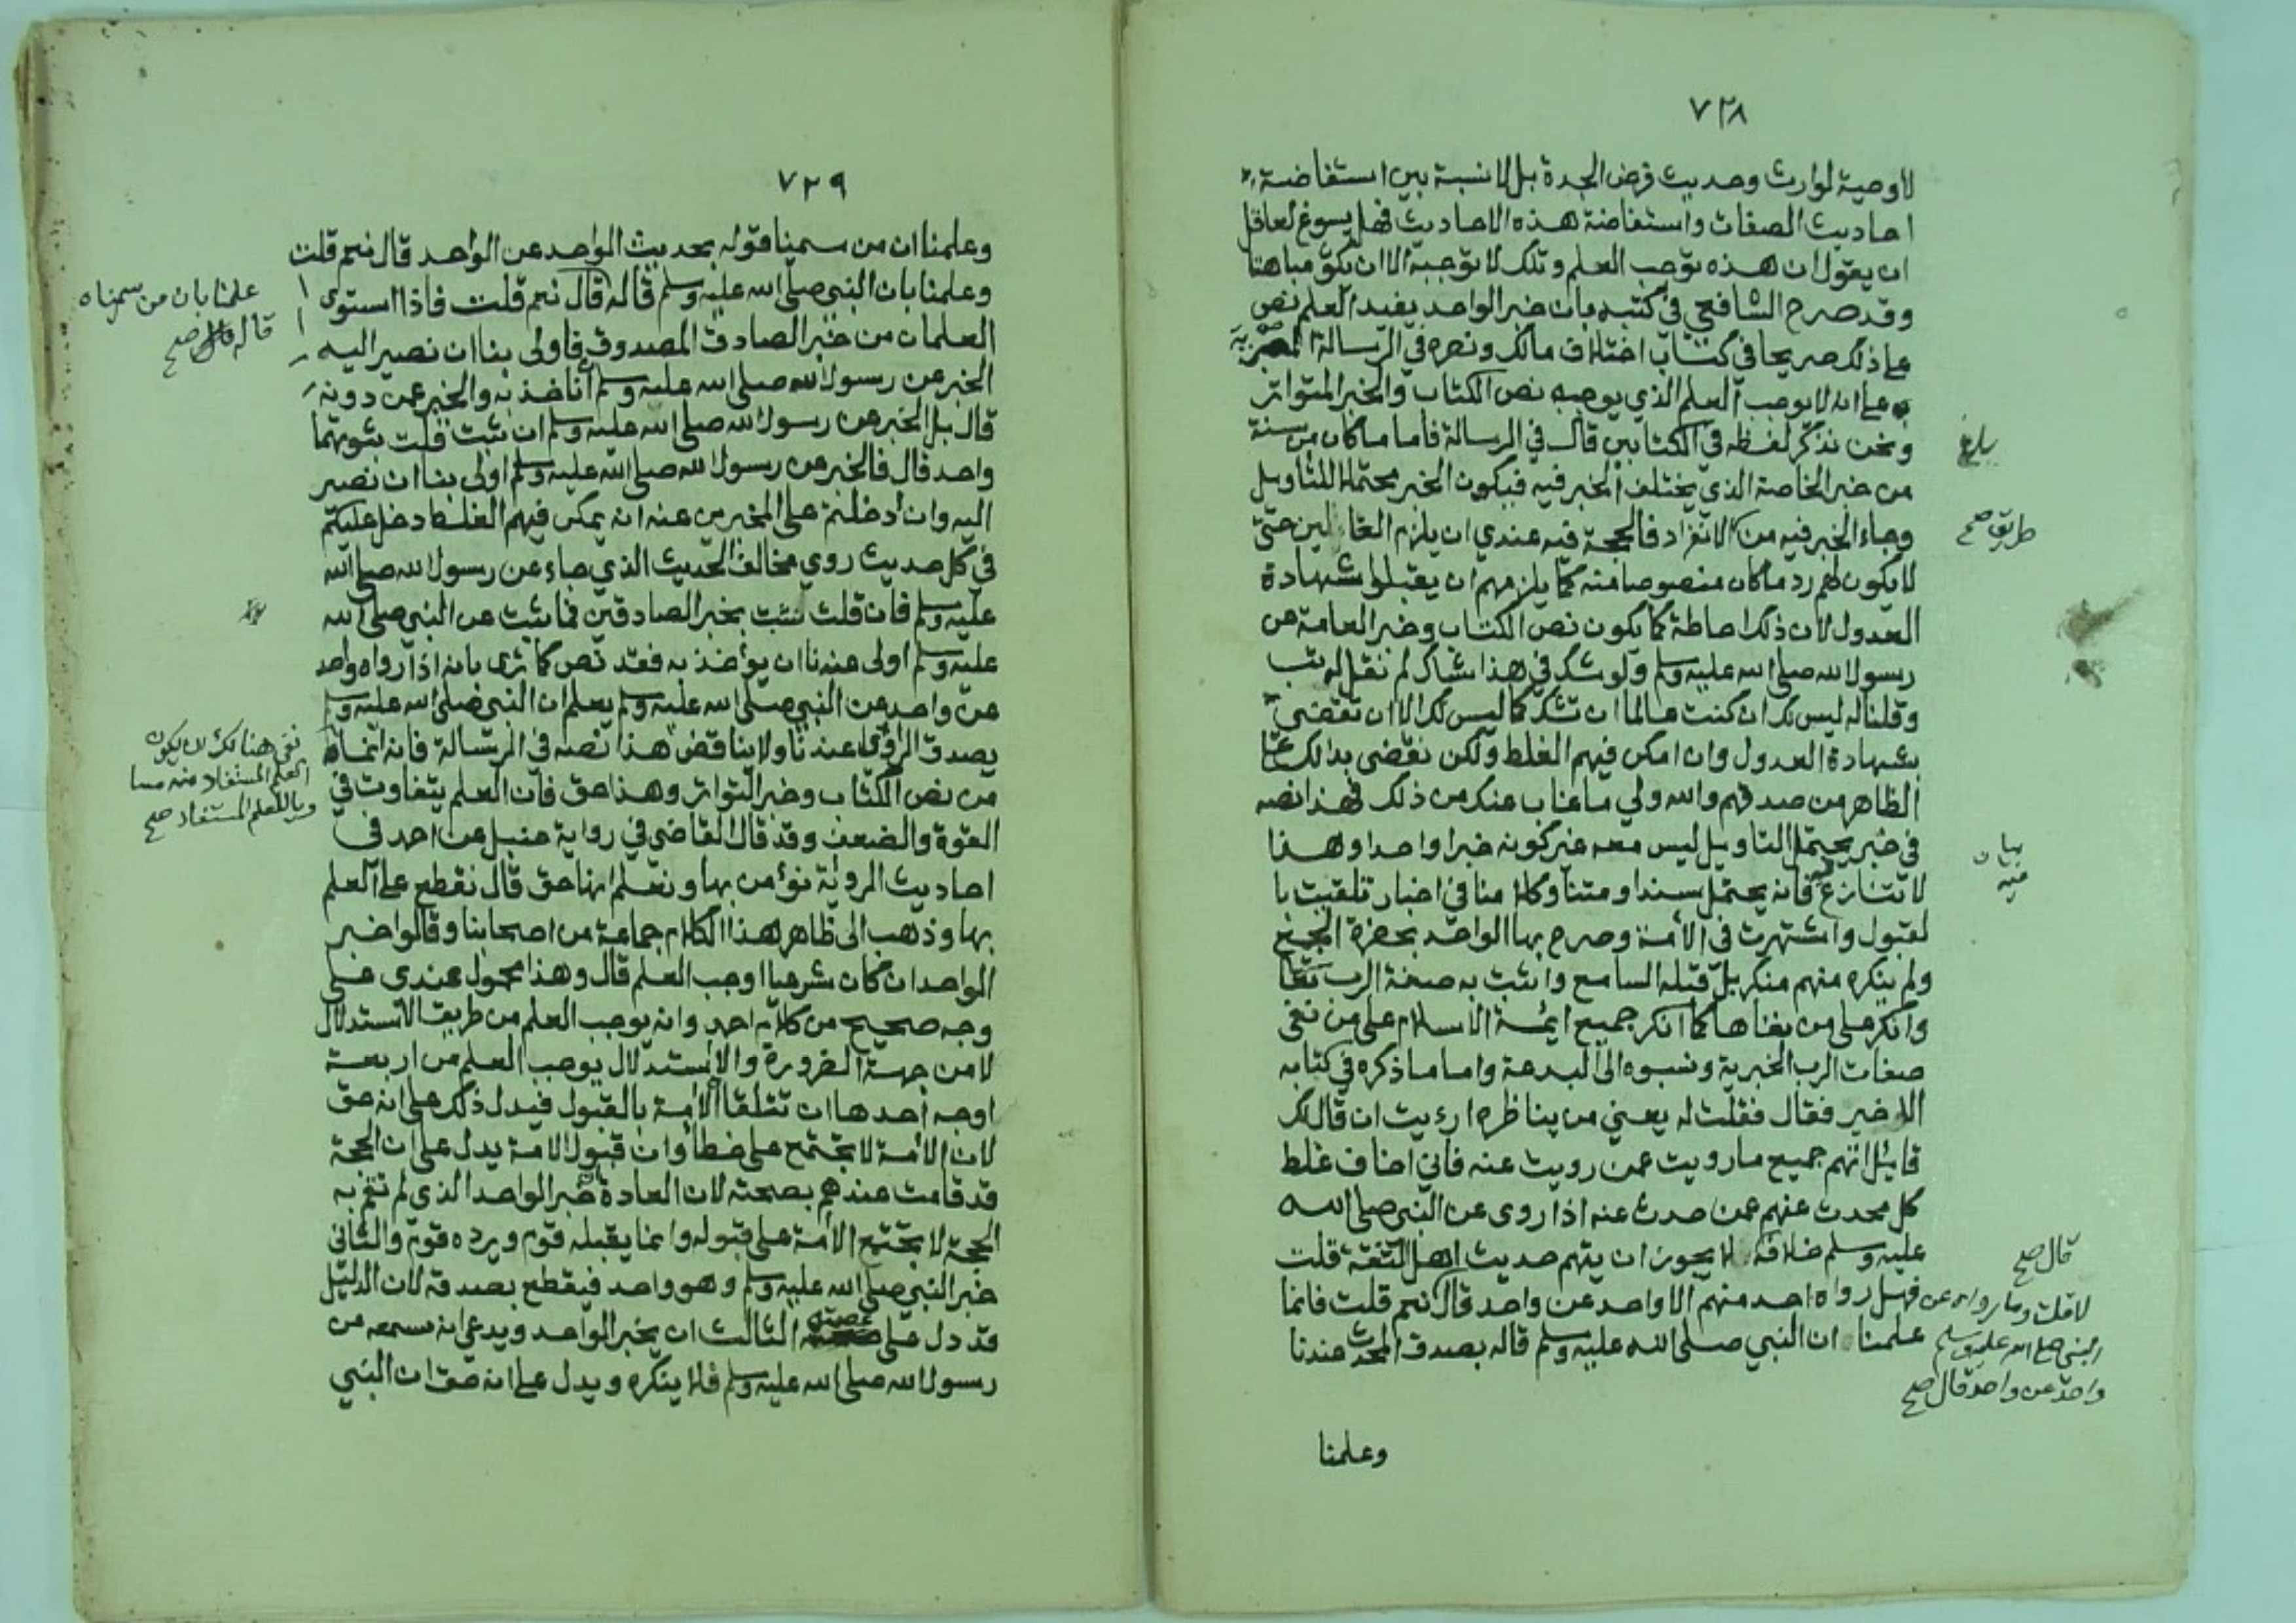 ٧٢٨
لا وصية لوارث وحديث فرض الجدة بل لا نسبة بين استفاضة
احاديث الصفات واستفاضة هذه الاحاديث فهل يسوغ لعاقل
ان يقول ان هذه توجب العلم وتلك لا توجبه الا ان يكون مباهتا
وقد صرح الشافعي في كتبه بان خبر الواحد يفيد العلم نص
على ذلك صريحا في كتاب اختلاف مالك ونصره في الرسالة المصرية
على انه لا يوجب العلم الذي يوجبه نص الكتاب والخبر المتواتر
ونحن نذكر لفظه في الكتابين قال في الرسالة فاما ما كان من سنة
من خبر الخاصة الذي يختلف الخبر فيه فيكون الخبر محتملا للتاويل
وجاء الخبر فيه من الانفراد فالحجة فيه عندي ان يلزم العالمين حتى
لا يكون لهم رد ما كان منصوصا منه كما يلزمهم ان يقبلوا شهادة
العدول لان ذلك احاطة كما يكون نص الكتاب وخبر العامة عن
رسول الله صلى الله عليه وسلم ولو شك في هذا شاك لم نقل له تب
وقلنا له ليس لك ان كنت عالما ان تشك كما ليس لك الا ان تقضي
بشهادة العدول وان امكن فيهم الغلط ولكن نقضي بذلك على
الظاهر من صدقهم والله ولي ما غاب عنك من ذلك فهذا نصه
في خبر يحتمل التاويل ليس معه غير كونه خبرا واحدا وهذا
لا تنازع فيه فانه يحتمل سندا ومتنا وكلامنا في اخبار تلقيت با
لقبول واشتهرت في الأمة وصرح بها الواحد بحضرة الجمع
ولم ينكره منهم منكر بل قبله السامع واثبت به صفة الرب تعالى
وانكر على من نفاها كما انكر جميع ائمة الاسلام على من نفى
صفات الرب الخبرية ونسبوه الى البدعة واما ما ذكره في كتابه
الاخير فقال فقلت له يعني من يناظره ارءيت ان قال لك
قايل اتهم جميع ما رويت عمن رويت عنه فاني اخاف غلط
كل محدث عنهم عمن حدث عنه اذا روى عن النبي صلى الله
عليه وسلم خلافه لا يجوز ان يتهم حديث اهل الثقة قلت
فهل رواه احد منهم الا واحد عن واحد قال نعم قلت فانما
علمنا ان النبي صلى الله عليه وسلم قاله بصدق المحدث عندنا
وعلمنا
بلغ
طريق صح
بيان
فيه
قال صح
لا قلت وما رواه عن
النبي صلى الله عليه وسلم
واحد عن واحد قال صح
٧٢٩
وعلمنا ان من سمينا قوله بحديث الواحد عن الواحد قال نعم قلت
وعلمنا بان النبي صلى الله عليه وسلم قاله قال نعم قلت فاذا استوى
العلمان من خبر الصادق المصدوق فاولى بنا ان نصير اليه
الخبر عن رسول الله صلى الله عليه وسلم أناخذ به والخبر عمن دونه
قال بل الخبر عن رسول الله صلى الله عليه وسلم ان ثبت قلت ثبوتهما
واحد قال فالخبر عن رسول الله صلى الله عليه وسلم اولى بنا ان نصير
اليه وان أدخلتم على المخبرين عنه انه يمكن فيهم الغلط دخل عليكم
في كل حديث روي مخالف الحديث الذي جاء عن رسول الله صلى الله
عليه وسلم فان قلت نثبت بخبر الصادقين فما ثبت عن النبي صلى الله
عليه وسلم اولى عندنا ان يؤخذ به فقد نص كما ترى بانه اذا رواه واحد
عن واحد عن النبي صلى الله عليه وسلم يعلم ان النبي صلى الله عليه وسلم
بصدق الراوي عندنا ولا يناقض هذا نصه في الرسالة فانه انما
من نص الكتاب وخبر التواتر وهذا حق فان العلم يتفاوت في
القوة والضعف وقد قال القاضي في رواية حنبل عن احمد في
احاديث الرواية نؤمن بها ونعلم انها حق قال نقطع على العلم
بها وذهب الى ظاهر هذا الكلام جماعة من اصحابنا وقالوا خبر
الواحد ان كان شرعيا اوجب العلم قال وهذا محمول عندي على
وجه صحيح من كلام احمد وانه يوجب العلم من طريق الاستدلال
لا من جهة الضرورة والاستدلال يوجب العلم من اربعة
اوجه أحدها ان تتلقا الأمة بالقبول فيدل ذلك على انه حق
لان الأمة لا تجتمع على خطأ وان قبول الامة يدل على ان الحجة
قد قامت عندهم بصحته لان العادة خبر الواحد الذي لم تقم به
الحجة لا تجتمع الأمة على قبوله وانما يقبله قوم ويرده قوم والثاني
خبر النبي صلى الله عليه وسلم وهو واحد فيقطع بصدقه لان الدليل
قد دل على عصمته الثالث ان يخبر الواحد ويدعي انه سمعه من
رسول الله صلى الله عليه وسلم فلا ينكره ويدل على انه حق ان النبي
علمنا بان من سميناه
قاله قال صح
نفى هنالك ان يكون
العلم المستفاد منه مسا
ويا للعلم المستفاد صح